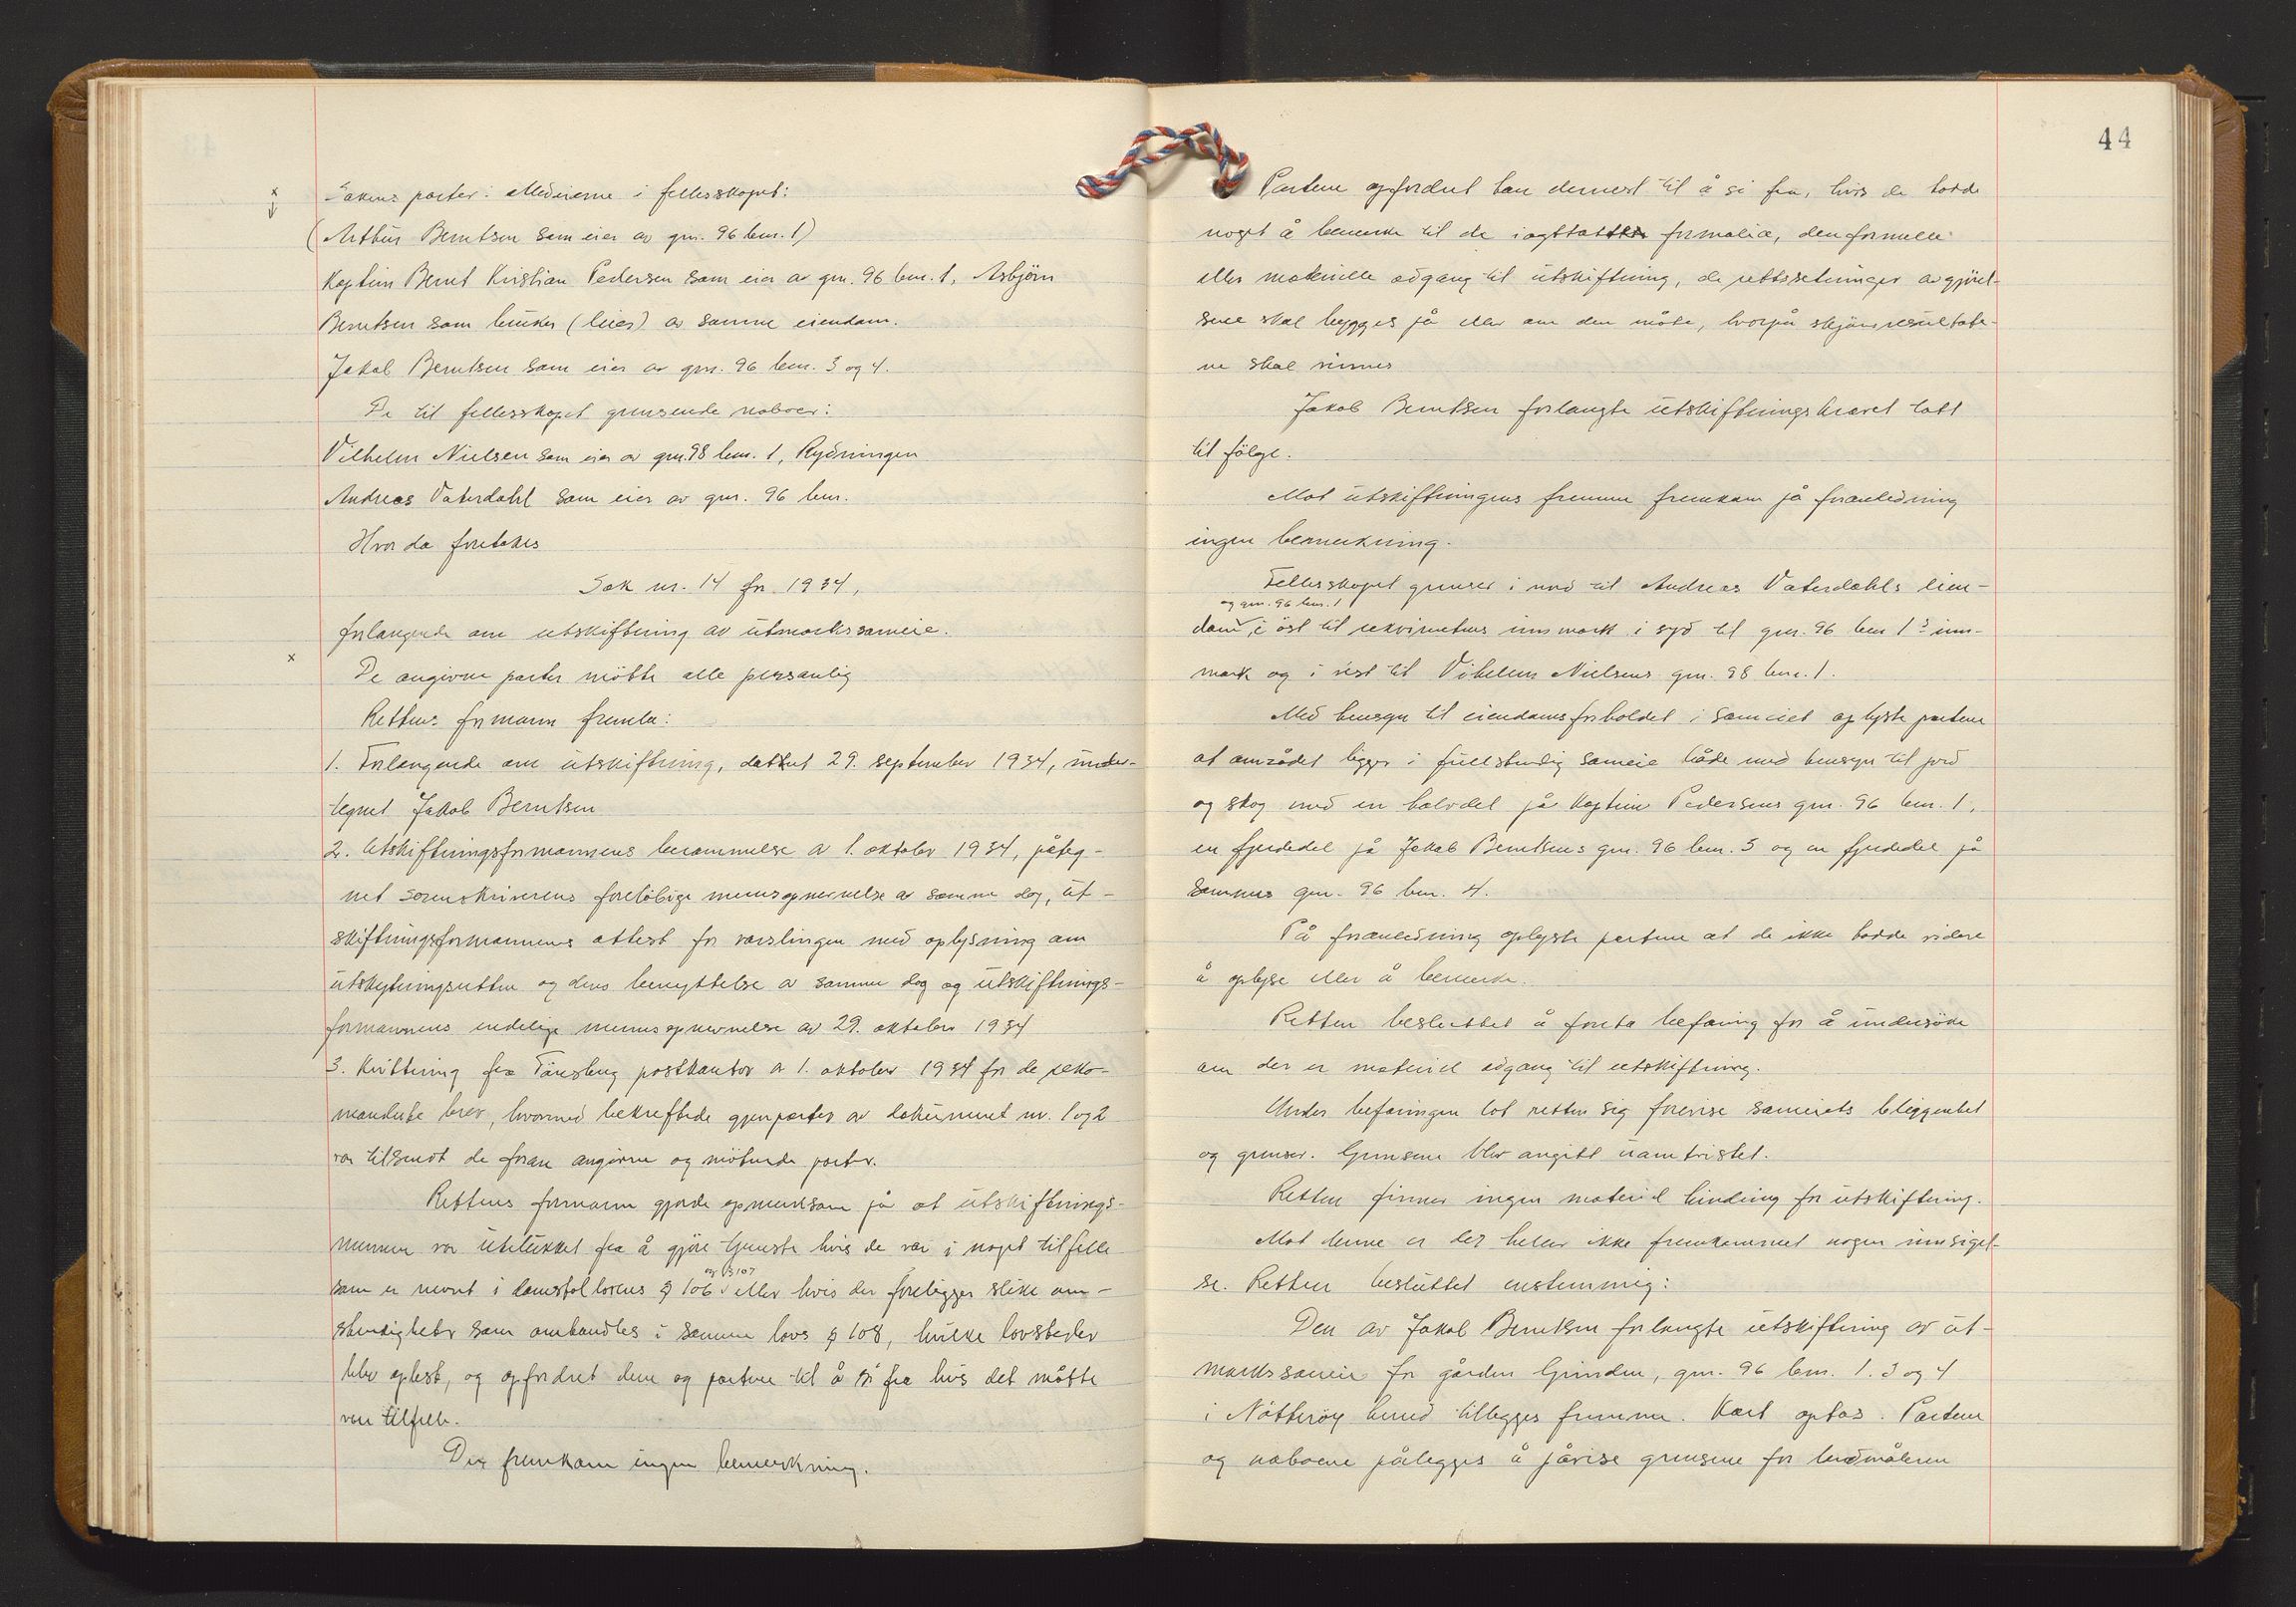 Sakens parter: Medeierne i fellesskapet:
(Arthur Berntsen som eier av gnr. 96 bnr. 1)
Kaptein Bernt Kristian Pedersen som eier av gnr. 96 bnr. 1, Asbjörn
Berntsen som bruker (leier) av samme eiendom.
Jakob Berntsen som eier av gnr. 96 bnr. 3 og 4.
De til fellesskapet grensende naboer:
Vilhelm Nielsen som eier av gnr. 98 bnr. 1, Rydningen
Andreas Vaterdahl som eier av gnr. 96 bnr.
Hvor da foretokes
Sak nr. 14 for 1934,
forlangende om utskiftning av utmarkssameie.
De angivne parter mötte alle personlig
Rettens formann fremla:
1. Forlangende om utskiftning, datert 29. september 1934, under-
tegnet Jakob Berntsen
2. Utskiftningsformannens berammelse av 1. oktober 1934, påteg-
net sorenskriverens foreløbige mennsopnevnelse av samme dag, ut-
skiftningsformannens attest for varslingen med oplysning om
utskytningsretten og dens benyttelse av samme dag og utskiftnings-
formannens endelige mennsopnevnelse av 29. oktober 1934
3. Kvittering fra Tönsberg postkontor av 1. oktober 1934 for de reko-
manderte brev, hvormed bekreftede gjenparter av dokument nr. 1 og 2
var tilsendt de foran angivne og mötende parter.
Rettens formann gjorde opmerksom på at utskiftnings-
mennene var utelukket fra å gjöre tjeneste hvis de var i noget tilfelle
som er nevnt i domstollovens § 106 og § 107 eller hvis der foreligger slike om-
stendigheter som omhandles i samme lovs § 108, hvilke lovsteder
blev oplest, og opfordret dem og partene til å si fra hvis det måtte
være tilfelle.
Der fremkom ingen bemerkning.
44
Partene opfordret han dernest til å si fra, hvis de hadde
noget å bemerke til de iagttatte formalia, den formelle
eller materielle adgang til utskiftning, de rettssetninger avgjörel-
sene skal bygges på eller om den måte, hvorpå skjönsresultate-
ne skal vinnes
Jakob Berntsen forlangte utskiftningskravet tatt
til fölge.
Mot utskiftningens fremme fremkom på foranledning
ingen bemerkning.
Fellesskapet grenser i nord til Andreas Vaterdahls eien-
dom og gnr. 96 bnr. 1, i öst til rekvirentens innmark i syd til gnr. 96 bnr 1s inn-
mark og i vest til Vilhelm Nielsens gnr. 98 bnr. 1.
Med hensyn til eiendomsforholdet i sameiet oplyste partene
at området ligger i fullstendig sameie både med hensyn til jord
og skog med en halvdel på Kaptein Pedersens gnr. 96 bnr. 1,
en fjerdedel på Jakob Berntsens gnr. 96 bnr. 3 og en fjerdedel på
sammes gnr. 96 bnr. 4.
På foranledning oplyste partene at de ikke hadde videre
å oplyse eller å bemerke.
Retten besluttet å foreta befaring for å undersöke
om der er materiel adgang til utskiftning.
Under befaringen lot retten sig forevise sameiets beliggenhet
og grenser. Grensene blev angitt uomtvistet.
Retten finner ingen materiel hindring for utskiftning.
Mot denne er det heller ikke fremkommet nogen innsigel-
se. Retten besluttet enstemmig:
Den av Jakob Berntsen forlangte utskiftning av ut-
markssameie for gården Grinden, gnr. 96 bnr. 1. 3 og 4
i Nötteröy herred tillegges fremme. Kart optas. Partene
og naboene pålegges å påvise grensene for landmåleren